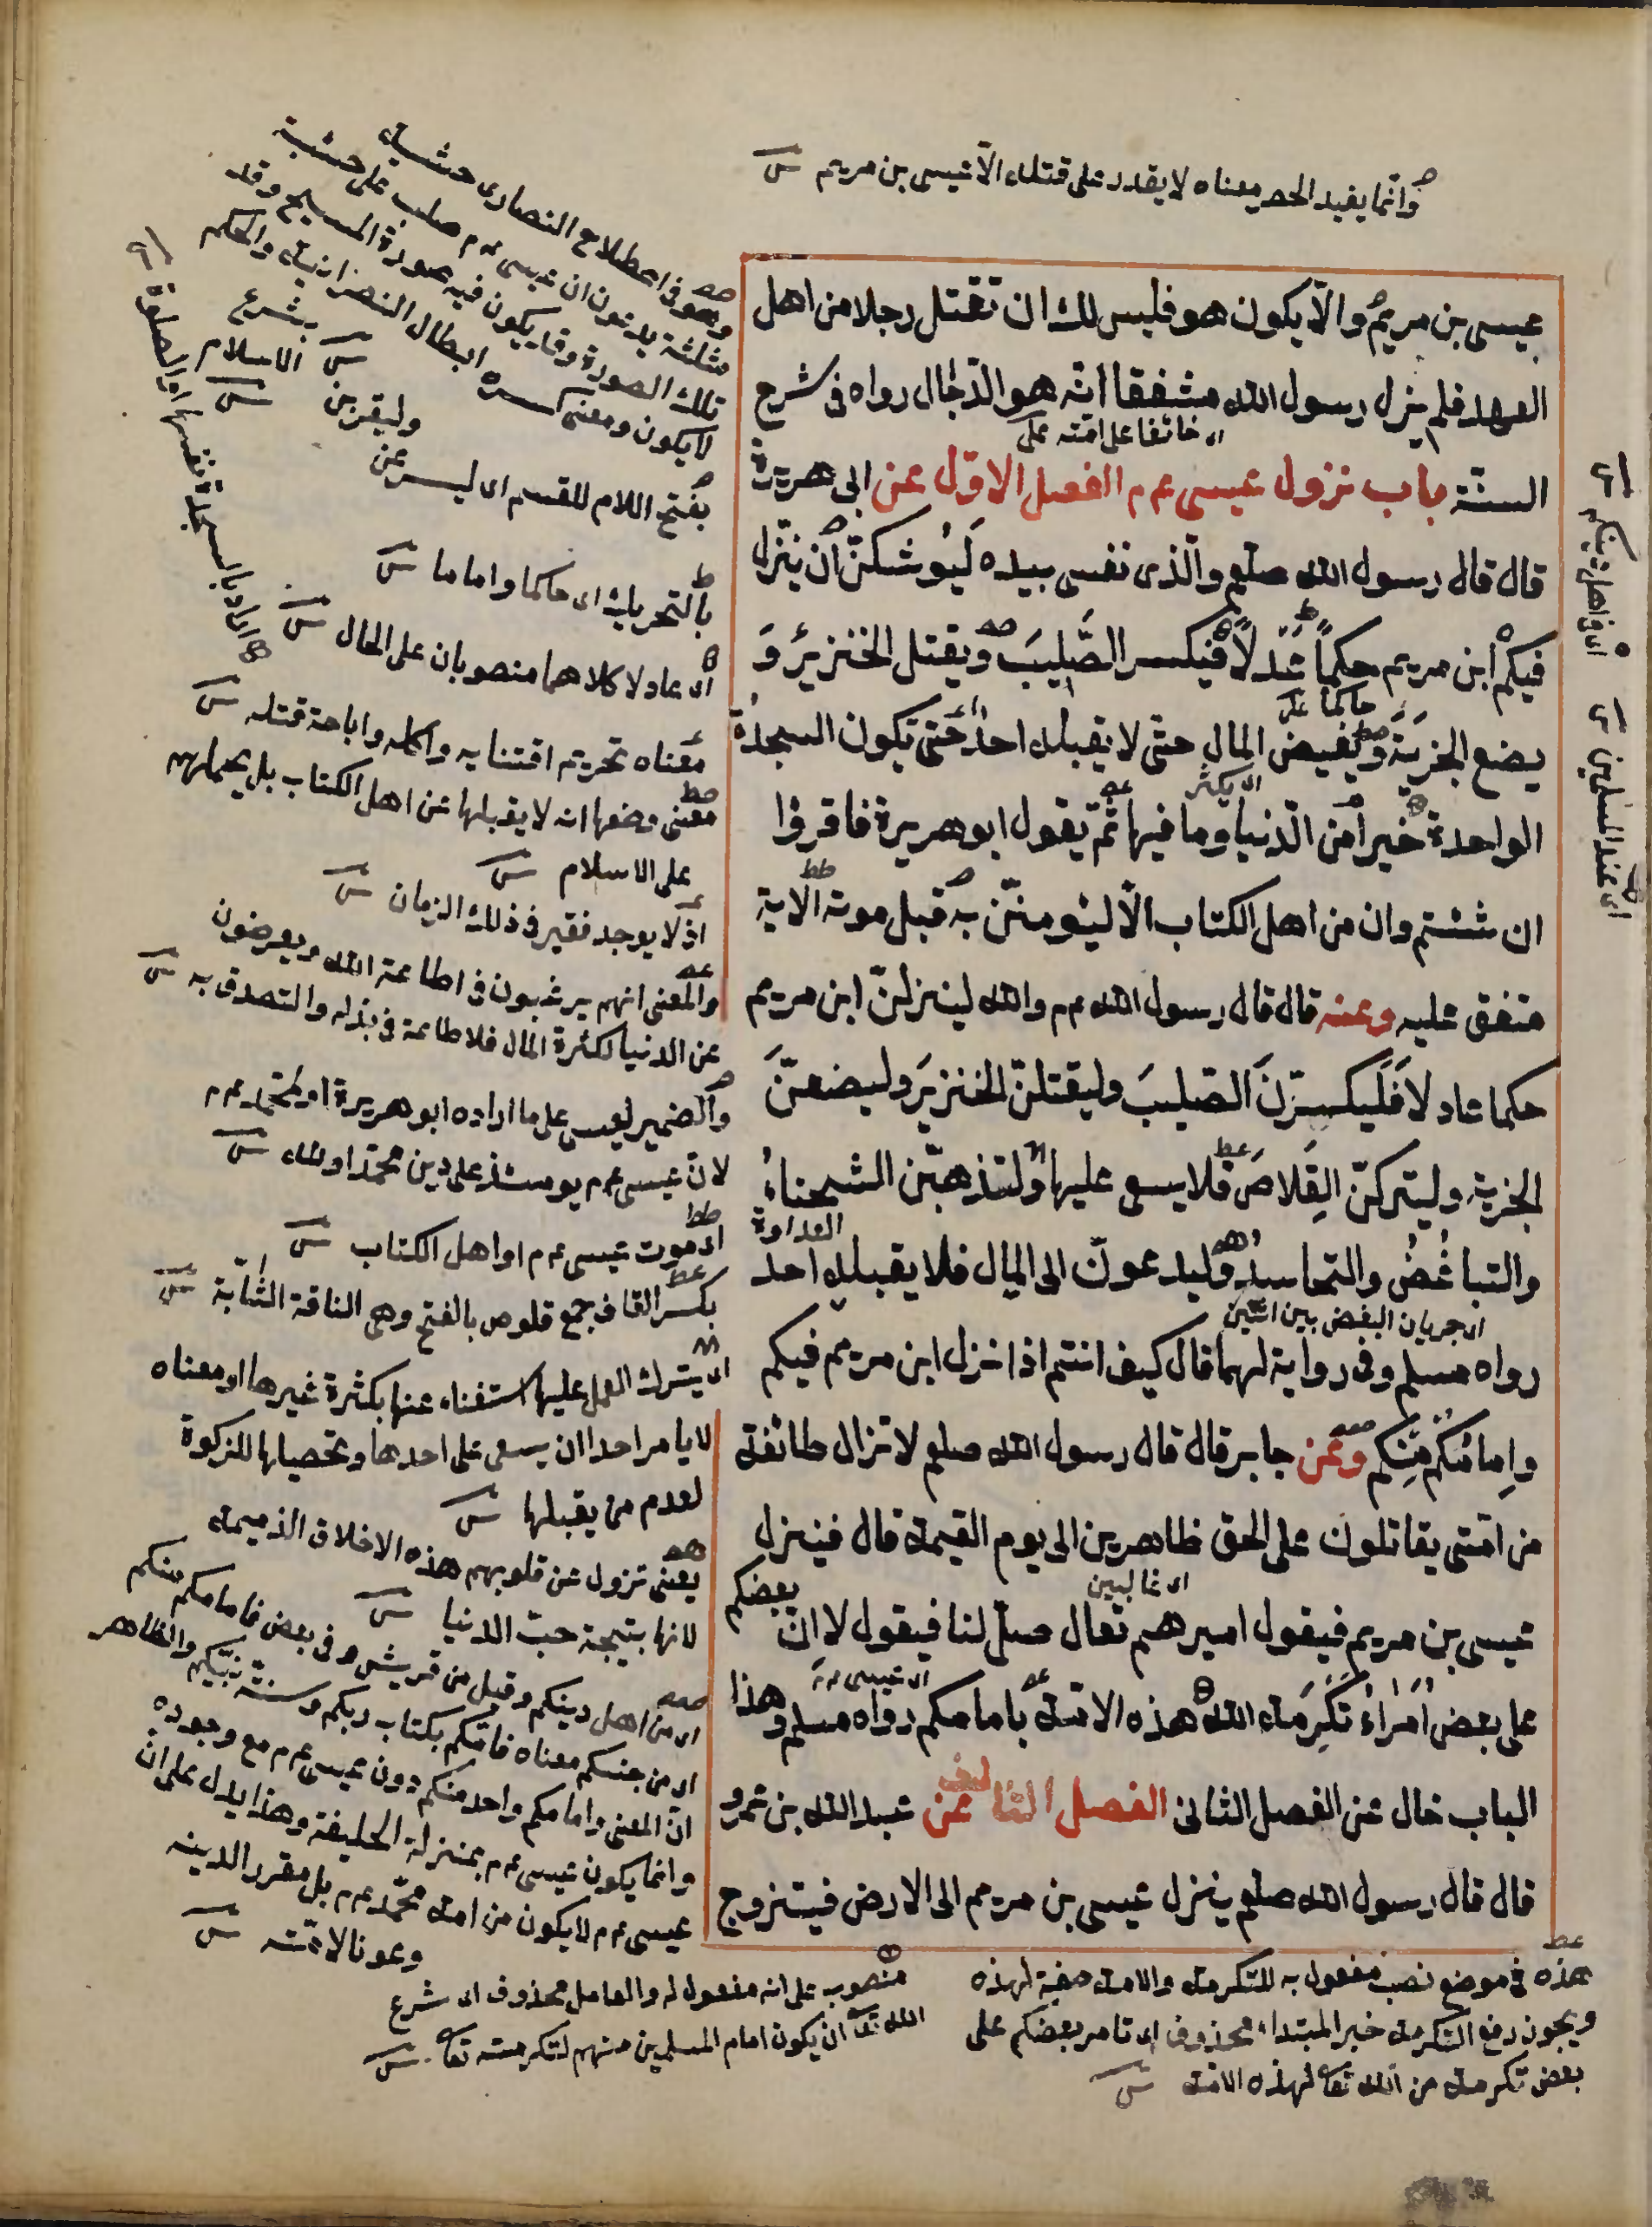 وانما يفيد الحصر معناه لا يقدر على قتله الا عيسى بن مريم
عيسى بن مريم والّا يكون هو فليس لك ان تقتل رجلا من اهل
العهد فلم يزل رسول الله مشفقا انّه هو الدّجّال رواه فى شرح
اى خائفا على امته
السنّة باب نزول عيسى عم م الفصل الاوّل عن ابى هريرة
قال قال رسول الله صلعم والّذى نفسى بيده لَيُوشكنّ ان ينزل
فيكم ابن مريم حكماً عَدْلاً فيكسر الصَّليبَ ويقتل الخنزيرَ وَ
حاكما
يضع الجزيَةَ ويفيض المال حتّى لا يقبله احدٌ حَتى تكون السجدةُ
اى يكثر
الواحدة خيراً من الدّنيا وما فيها ثمّ يقول ابو هريرة فاقرؤا
ان شئتم وان من اهل الكتاب الّا ليؤمننّ به قبل موته الآية
متفق عليه وعنه قال قال رسول الله عم والله لينزلنّ ابن مريم
حكما عادلاً فَلَيكسِرَنَّ الصّليبَ وليقتلنّ الخنزيرَ وليضعنّ
الجزية وليتركنّ القِلاصَ فلا يسعى عليها ولتذهبّن الشحناءُ
العداوة
والتباغُضُ والتحاسدُ وليدعونّ الى المال فلا يقبله احد
اى جريان البغض بين اثنين
رواه مسلم وفى رواية لهما قال كيف انتم اذا نزل ابن مريم فيكم
وإمامُكم منكم وعن جابر قال قال رسول الله صلعم لا تزال طائفة
من امّتى يقاتلون على الحق ظاهرين الى يوم القيمة قال فينزل
اى غالبين
عيسى بن مريم فيقول اميرهم تعال صلّ لنا فيقول لا انّ بعضكم
اى عيسى
على بعض أُمَراءُ تَكرِمَة الله هذه الامّة بامامكم رواه مسلم وهذا
الباب خال عن الفصل الثانى الفصل الثالث عن عبد الله بن عمرو
قال قال رسول الله صلعم ينزل عيسى بن مريم الى الارض فيتزوج
وهو فى اصطلاح النصارى خشبة
مثلثة يدعون ان عيسى عم م صلب على خشبة
تلك الصورة وقد يكون فيه صورة المسيح وقد
لا يكون ومعنى كسره ابطال النصرانية والحكم
بشرع
الاسلام
بفتح اللام للقسم اى ليسرعن
وليقربن
بالتحريك اى حاكما واماما
اى عادلا كلاهما منصوبان على الحال
معناه تحريم اقتنايه واكله واباحة قتله
معنى وضعها انه لا يقبلها عن اهل الكتاب بل يحملهم
على الاسلام
اذ لا يوجد فقير فى ذلك الزمان
والمعنى انهم يرغبون فى اطاعة الله ويعرضون
عن الدنيا لكثرة المال فلا طاعة فى بذله والتصدق به
والضمير لعيسى على ما اراده ابو هريرة او لمحمّد عم م
لان عيسى عم م يومئذ على دين محمّد او لله
اى موت عيسى عم م او اهل الكتاب
بكسر القاف جمع قلوص بالفتح وهى الناقة الشّابّة
اى يترك العمل عليها استغناء عنها بكثرة غيرها او معناه
لا يامر احدا ان يسعى على احدها وتحصيلها للزكوة
لعدم من يقبلها
يعنى تزول عن قلوبهم هذه الاخلاق الذميمة
لانها نتيجة حبّ الدنيا
اى من اهل دينكم وقيل من قريش وفى بعض فامامكم منكم
اى من جنسكم معناه فامّكم بكتاب ربكم وسنّة نبيّكم والظاهر
انّ المعنى وامامكم واحد منكم دون عيسى عم م مع وجوده
وانما يكون عيسى عم م بمنزلة الخليفة وهذا يدل على انّ
عيسى عم م لا يكون من امة محمّد عم م بل مقرر الدينه
وعونا لامّته
اى فى اهل دينكم
اى عند المسلمين
اراد بالسجدة نفسها او الصلوة
هذه فى موضع نصب مفعول به للتكرمة والامة صفة لهذه
ويجوز رفع التكرمة خبر المبتداء محذوف اى تامر بعضكم على
بعض تكرمة من الله تعا لهذه الامّة
منصوب على انه مفعول له والعامل محذوف اى شرع
الله تعا ان يكون امام المسلمين منهم لتكرمته تعا